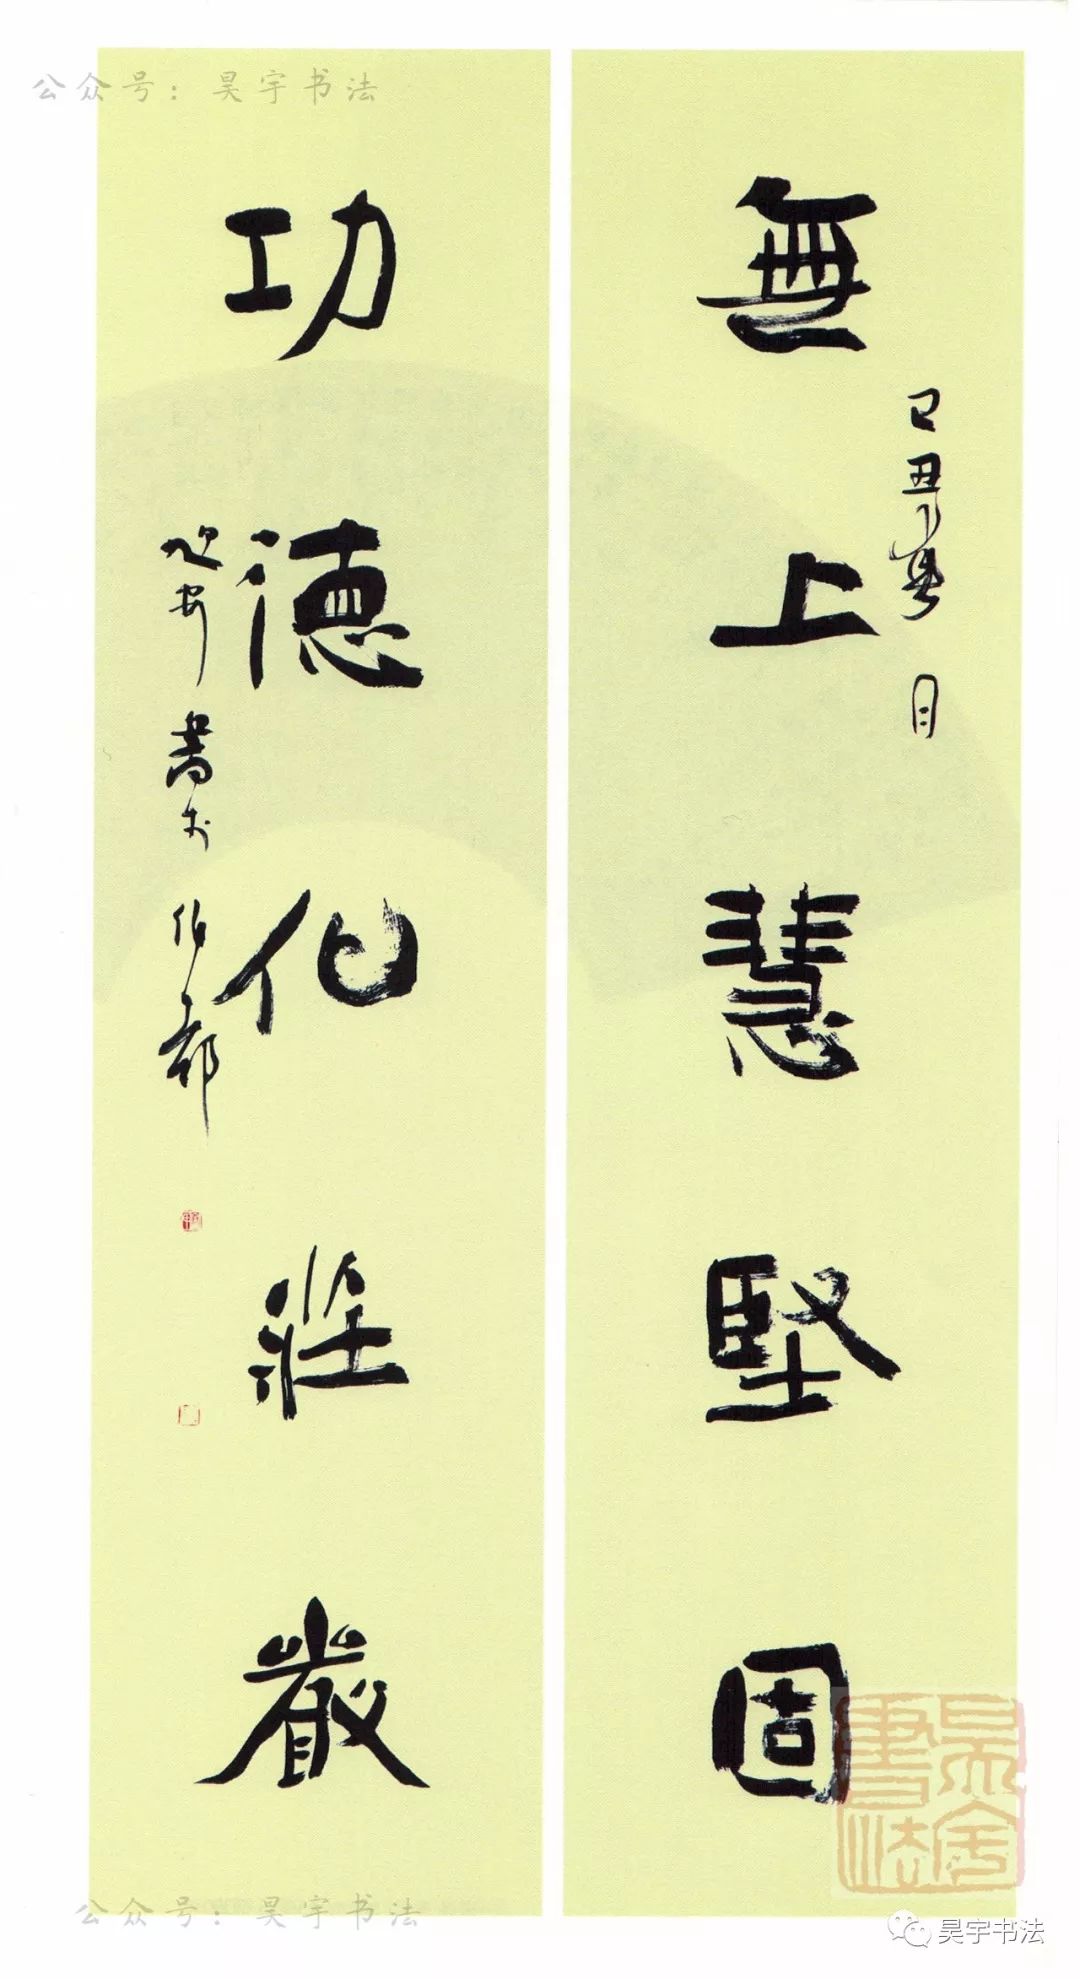 公众号：昊宇书法
無上慧堅固
己丑夏月
功德化莊嚴
書於
公众号：昊宇书法
昊宇書法
昊宇书法